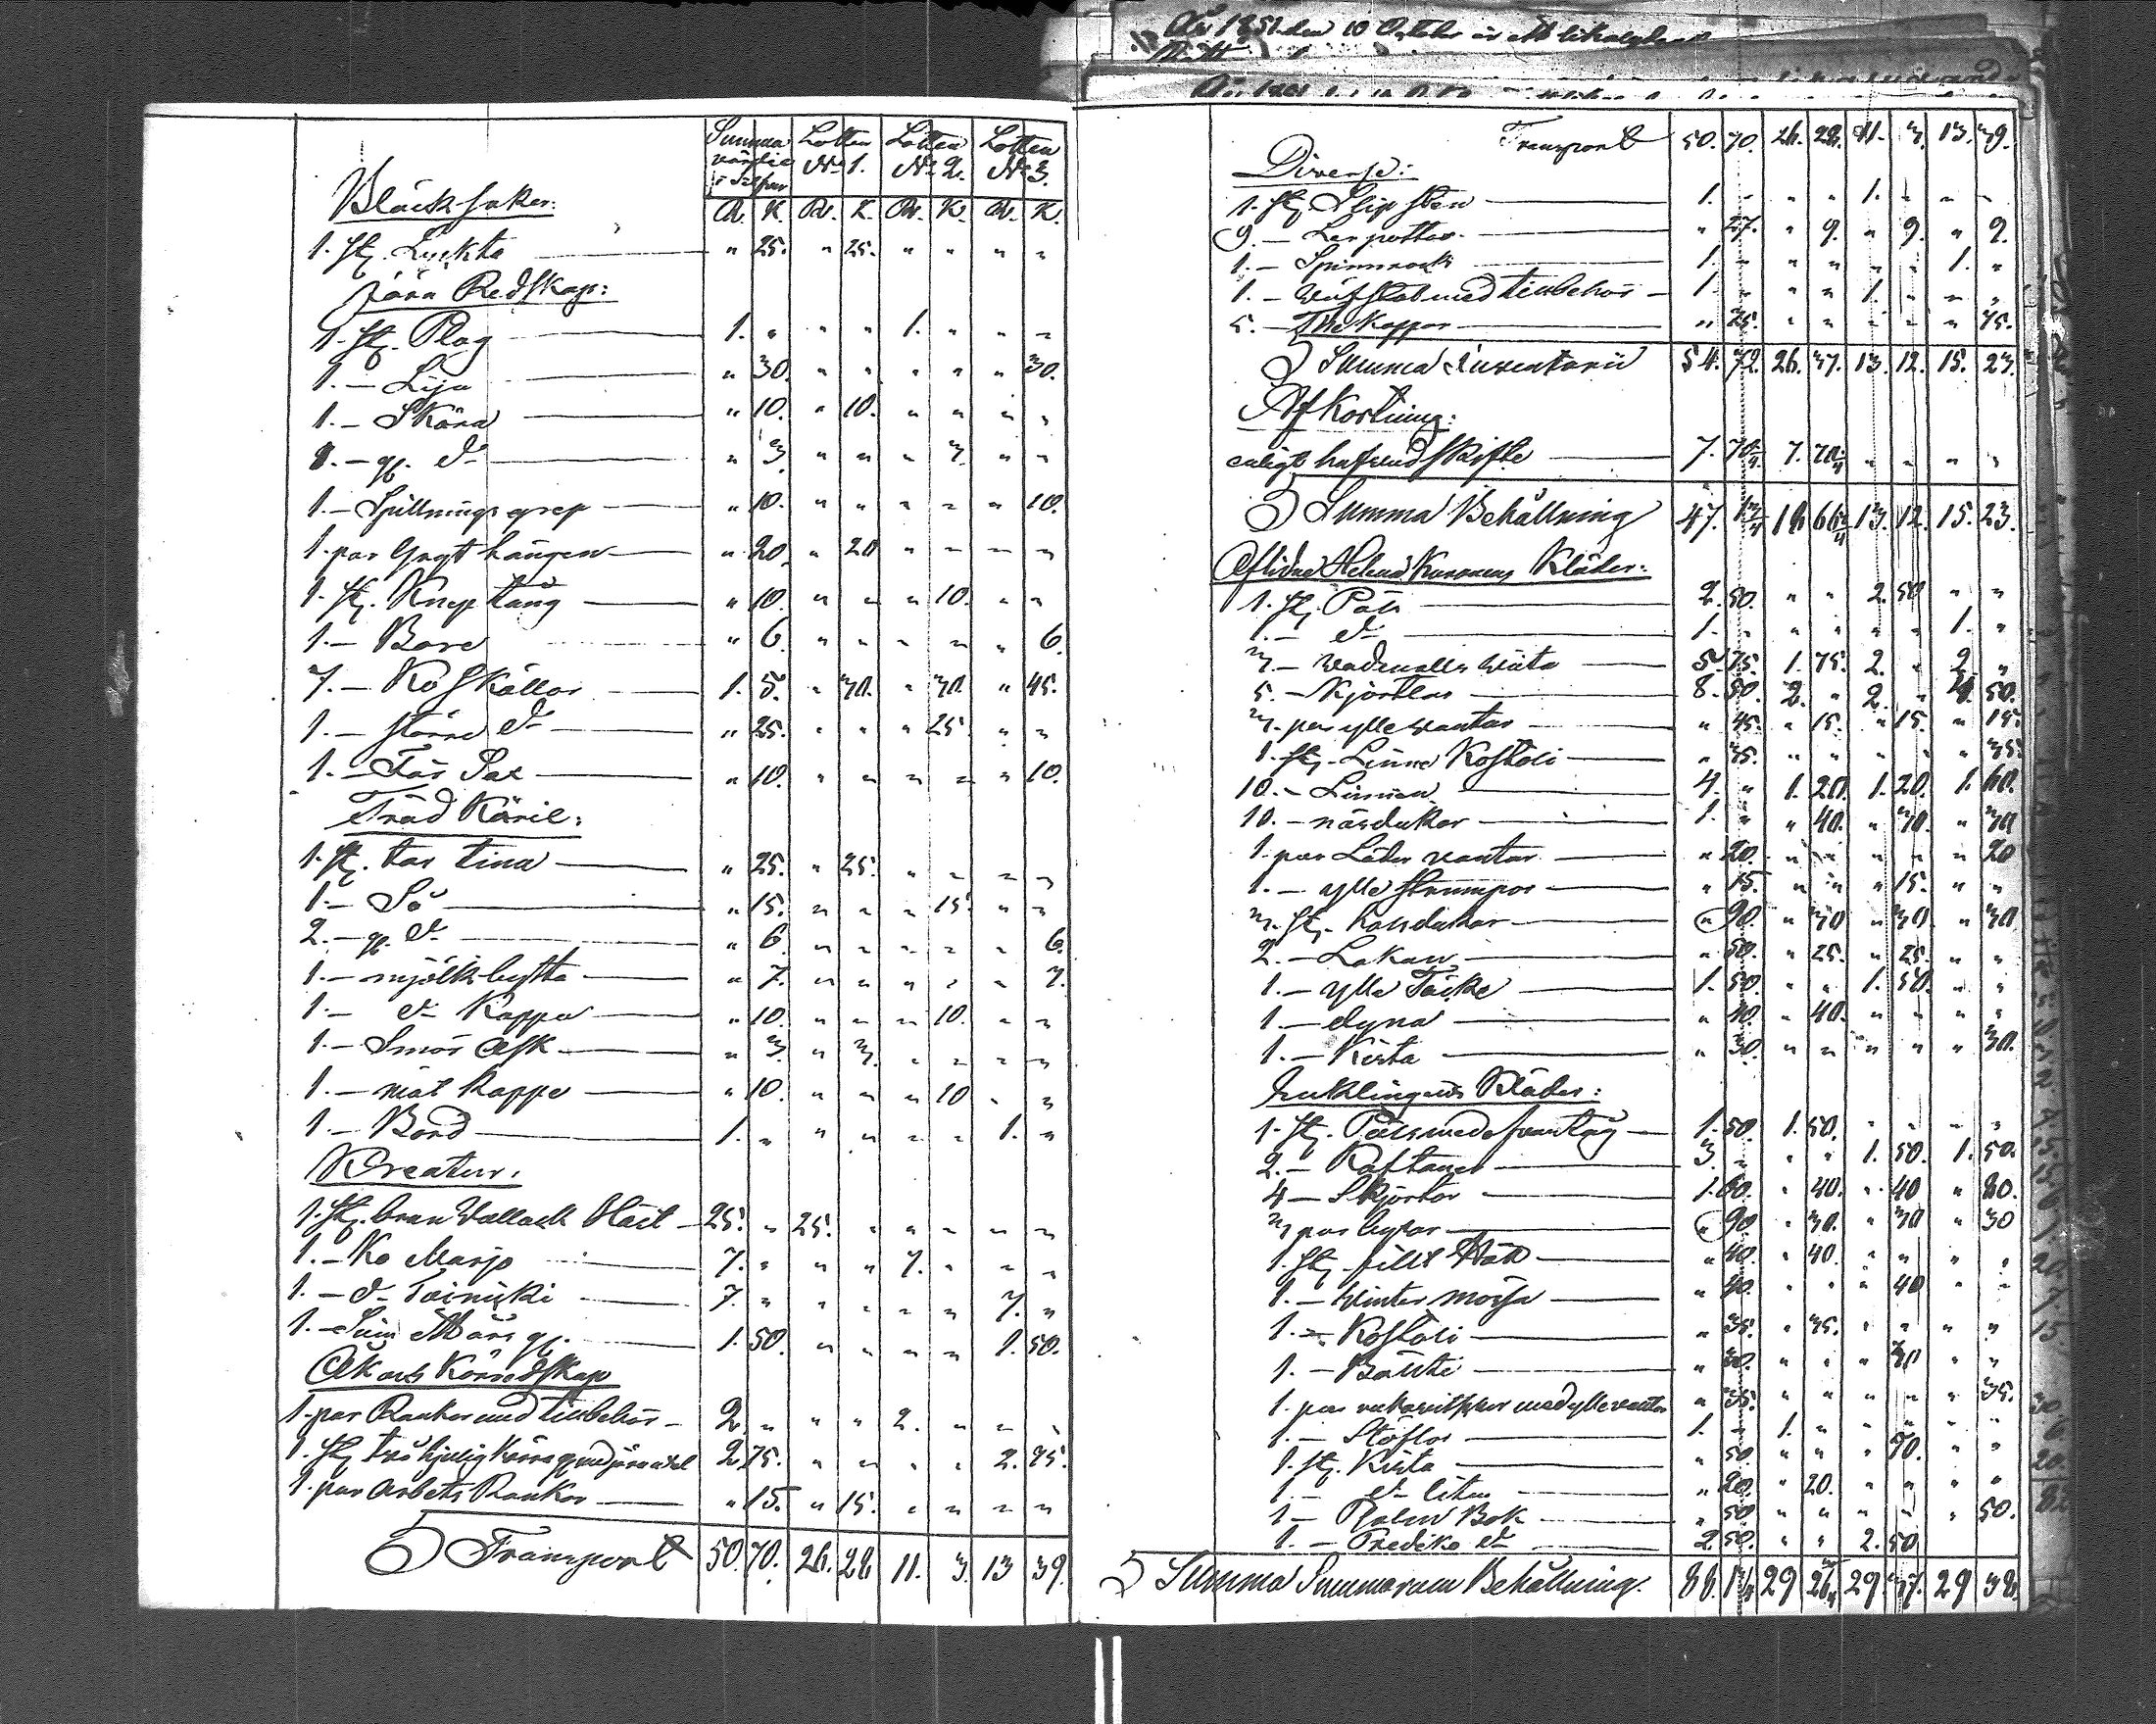 Summa Lotten Lotten Lotten
värdie i Silfver N: 1. N: 2. N: 3.
Bläcksaker: R. K. R. K. R. K. R. K.
1. st. Lyckta " 25. " 25. " " " "
Järn Redskap:
1. st. Plog 1. " " " 1. " " "
1. – Lija " 30. " " " " " 30.
1. – Skära " 10. " 10. " " " "
1. – gl. do " 3. " " " 3. " "
1. – Spillnings grep " 10. " " " " " 10.
1. par Grythängen " 20. " 20 " " " "
1. st. Kneptång " 10. " " " 10. " "
1. – Bore " 6. " " " " " 6.
7. – Koskällor 1. 5. " 30. " 30. " 45.
1. – större do " 25. " " " 25. " "
1. – Får Sax " 10. " " " " " 10.
Träd Käril:
1. st. tar tina " 25. " 25. " " " "
1. – Så " 15. " " " 15. " "
2. – gl. do " 6. " " " " " 6.
1. – mjölkbytta " 7. " " " " " 7.
1. – do Kappa " 10. " " " 10. " "
1. – Smör Ask " 3. " 3. " " " "
1. – mål Kappe " 10. " " " 10 " "
1. – Bord 1. " " " " " 1. "
Kreatur:
1. st. brun Wallack Häst 25. " 25. " " " " "
1. – Ko Marjo 7. " " " 7. " " "
1. – do Toinicki 7. " " " " " 7. "
1. – 1. 50. " " " " 1. 50.
Åk och Körredskap
1. par Rankor med tillbehör 2. " " " 2. " " "
1. st två hjulig Kärra 2. 25. " " " " 2. 25.
1. par Arbets Rankor " 15. " 15. " " " "
S Transport 50. 70. 26. 28 11. 3. 13 39.
År 1851 den 10 October
Transport 50. 70. 26. 28. 11. 3. 13. 39.
Diverse:
1. st. Slipsten 1. " " " 1. " " "
9. – Lerpottor " 27. " 9. " 9. " 9.
1. – Spinnrock 1. " " " " " 1. "
1. – Wäfstol med tillbehör 1. " " " 1. " " "
5. – The Koppar " 75. " " " " " 75.
S Summa Inventarii 54. 72. 26. 37. 13. 12. 15. 23.
Afkortning:
enligt hufvudskifte 7. 70¾ 7. 70¾ " " " "
S Summa Behållning 47. 1¼ 18 66¼ 13. 12. 15. 23.
Aflidne Helena Kuronens Kläder:
1. st. Päls 2. 50. " " 2. 50 " "
1. – do 1. " " " " " 1. "
3. – Wadmalls tröta 5. 75. 1. 75. 2. " 2. "
5. – Kjortlar 8. 50. 2. " 2. " 4. 50.
3. par ylle wantar " 45. " 15. " 15. " 15.
1. st. Linne Kostoli " 35. " " " " " 35.
10. – Linnen 4. " 1. 20. 1. 20. 1. 60.
10. – näsdukar 1. " " 40. " 30. " 30
1. par Läder wantar " 20. " " " " " 20
1. – ylle strumpor " 15. " " " 15. " "
3. st. " 90. " 30 " 30. " 30
2. – Lakan " 50. " 25. " 25. " "
1. – ylle Täcke 1. 50. " " 1. 50. " "
1. – dyna " 40. " 40. " " " "
1. – Kista " 30. " " " " " 30.
Enklingens Kläder:
1. st. Päls med öfvantyg 1. 50. 1. 50. " " " "
2. – Kaftaner 3. " " " 1. 50. 1. 50.
4 – Skjortor 1. 60. " 40. " 40 " 80.
3 par byxor " 90 " 30. " 30 " 30
1. st. fillt Hatt " 40. " 40. " " " "
1. – Winter mössa " 40. " " " 40 " "
1. – Kostoli " 35. " 35. " " " "
1. – Bälte " 30. " " " 30 " "
1. par med ylle wantar " 35. " " " " " 35.
1. – Stöflar 1. " 1. " " " " "
1. st. Kista " 50. " " " " "
1. – do liten " 20. " 20. " " " "
1 – Psalm Bok " 50 " " " " " 50.
1. – Prediko do 2. 50. " " 2. 50
S Summa Summarum Behållning. 88. 1¼ 29 26¼ 29. 37. 29 38.